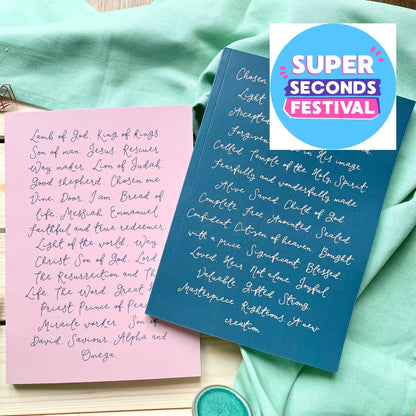 Lamb of God. King of kings
Son of man. Jesus. Rescuer.
Way maker. Lion of Judah.
Good shepherd. Chosen one.
Vine. Door. I am. Bread of
life. Messiah. Emmanuel
Faithful and true redeemer.
Light of the world. Way.
Christ. Son of God. Lord
The Resurrection and The
Life. The Word. Great
Priest. Prince of Peace
Miracle worker. Son of
David. Saviour. Alpha and
Omega.
Chosen
Light
Accepted
Forgiven in His image
Called. Temple of the Holy Spirit
Fearfully and wonderfully made
Alive. Saved. Child of God.
Complete. Free. Anointed. Sealed
Confident. Citizen of heaven. Bought
with a price. Significant. Blessed.
Loved. Heir. Not alone. Joyful.
Valuable. Gifted. Strong.
Masterpiece. Righteous. A new
creation.
SUPER
SECONDS
FESTIVAL